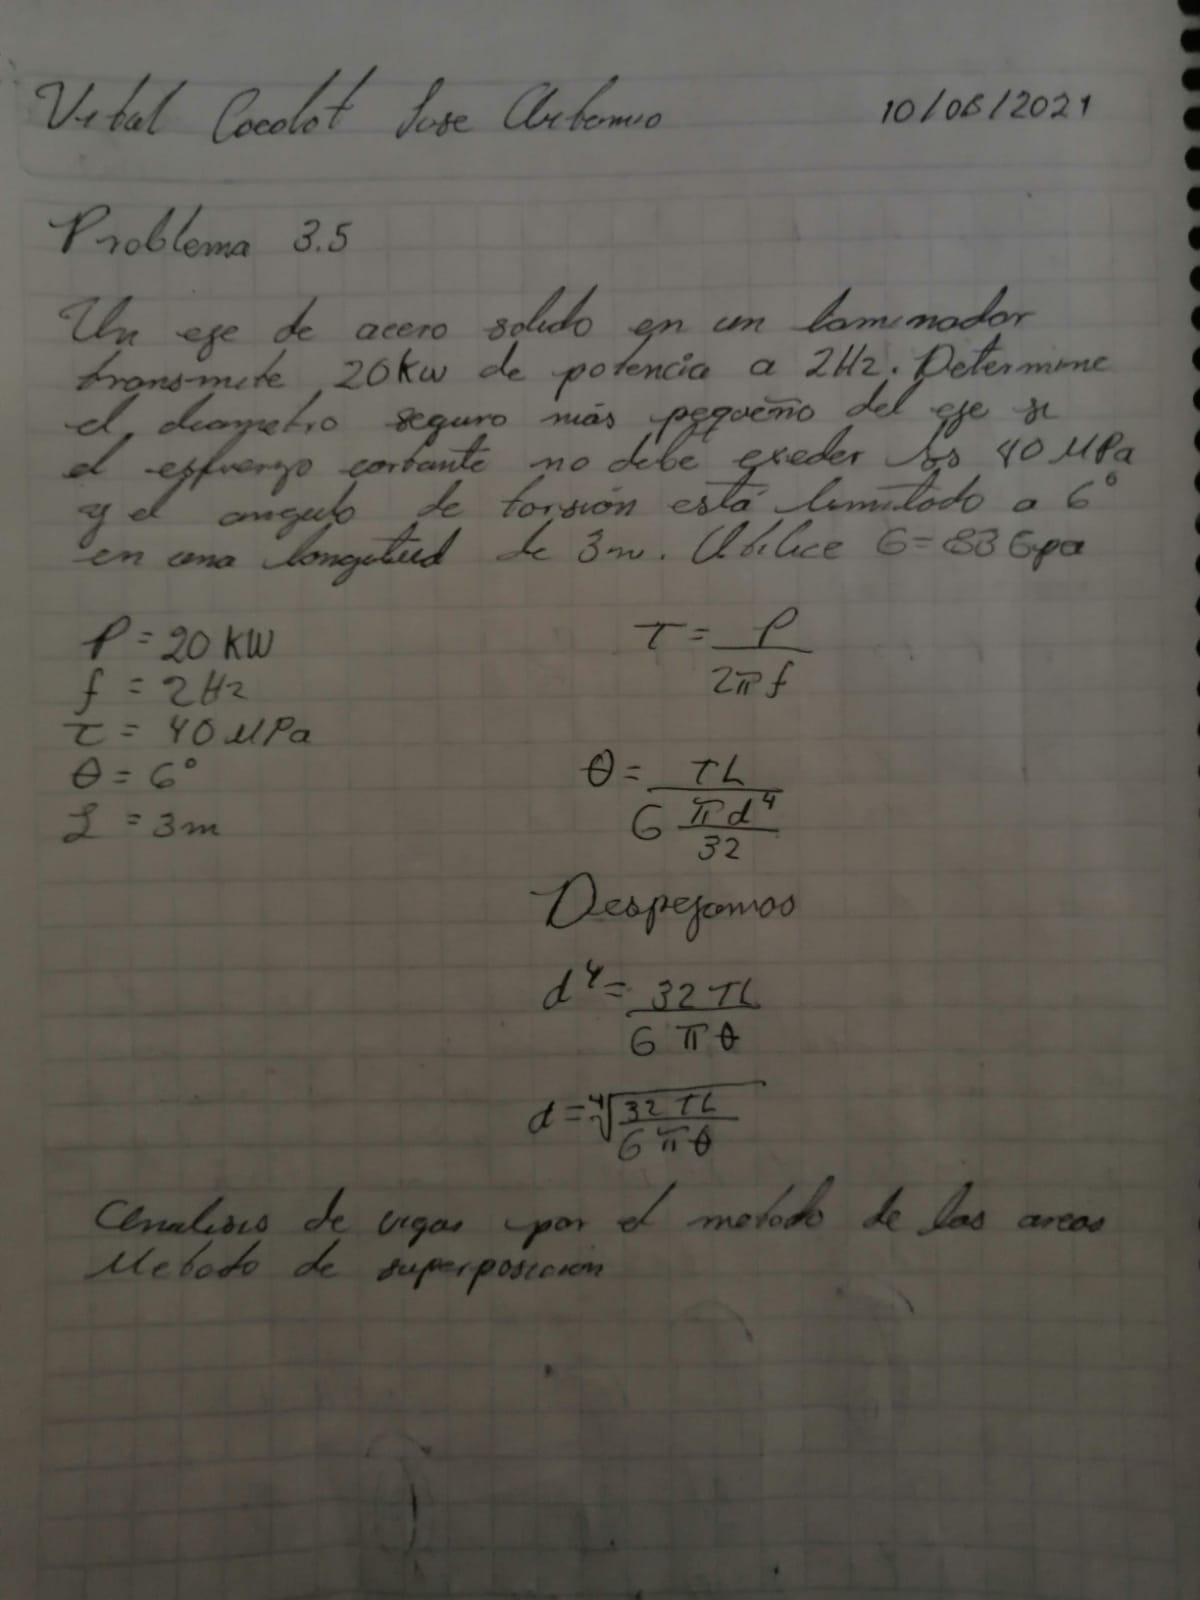 Vital Cocolot Jose Artemio 10/06/2021
Problema 3.5
Un eje de acero solido en un laminador
transmite 20kw de potencia a 2Hz. Determine
el diametro seguro más pequeño del eje si
el esfuerzo cortante no debe exeder los 40 MPa
y el angulo de torsión está limitado a 6°
en una longitud de 3m. Utilice G=83Gpa
P = 20 KW
f = 2Hz
τ = 40 MPa
θ = 6°
L = 3m
T = P / 2πf
θ = TL / G πd⁴/32
Despejamos
d⁴ = 32TL / GπΘ
d = ⁴√32TL / Gπθ
Analisis de vigas por el metodo de las areas
Metodo de superposicion